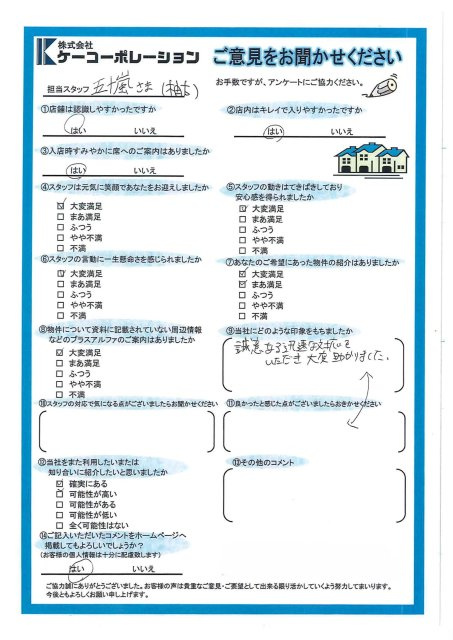 株式会社
ケーコーポレーション
ご意見をお聞かせください
担当スタッフ 五十嵐さま(柏店)
お手数ですが、アンケートにご協力ください。
①店舗は認識しやすかったですか
はい いいえ
②店内はキレイで入りやすかったですか
はい いいえ
③入店時すみやかに席へのご案内はありましたか
はい いいえ
④スタッフは元気に笑顔であなたをお迎えしましたか
大変満足
まあ満足
ふつう
やや不満
不満
⑤スタッフの動きはてきぱきしており
安心感を得られましたか
大変満足
まあ満足
ふつう
やや不満
不満
⑥スタッフの言動に一生懸命さを感じられましたか
大変満足
まあ満足
ふつう
やや不満
不満
⑦あなたのご希望にあった物件の紹介はありましたか
大変満足
まあ満足
ふつう
やや不満
不満
⑧物件について資料に記載されていない周辺情報
などのプラスアルファのご案内はありましたか
大変満足
まあ満足
ふつう
やや不満
不満
⑨当社にどのような印象をもちましたか
誠意なる迅速な対応を
いただき 大変助かりました。
⑩スタッフの対応で気になる点がございましたらお聞かせください
⑪良かったと感じた点がございましたらおきかせください
⑫当社をまた利用したいまたは
知り合いに紹介したいと思いましたか
確実にある
可能性が高い
可能性がある
可能性が低い
全く可能性はない
⑬その他のコメント
⑭ご記入いただいたコメントをホームページへ
掲載してもよろしいでしょうか?
(お客様の個人情報は十分に配慮致します)
はい いいえ
ご協力誠にありがとうございました。お客様の声は貴重なご意見・ご要望として出来る限り活かしていくよう努力してまいります。
今後ともよろしくお願い申し上げます。